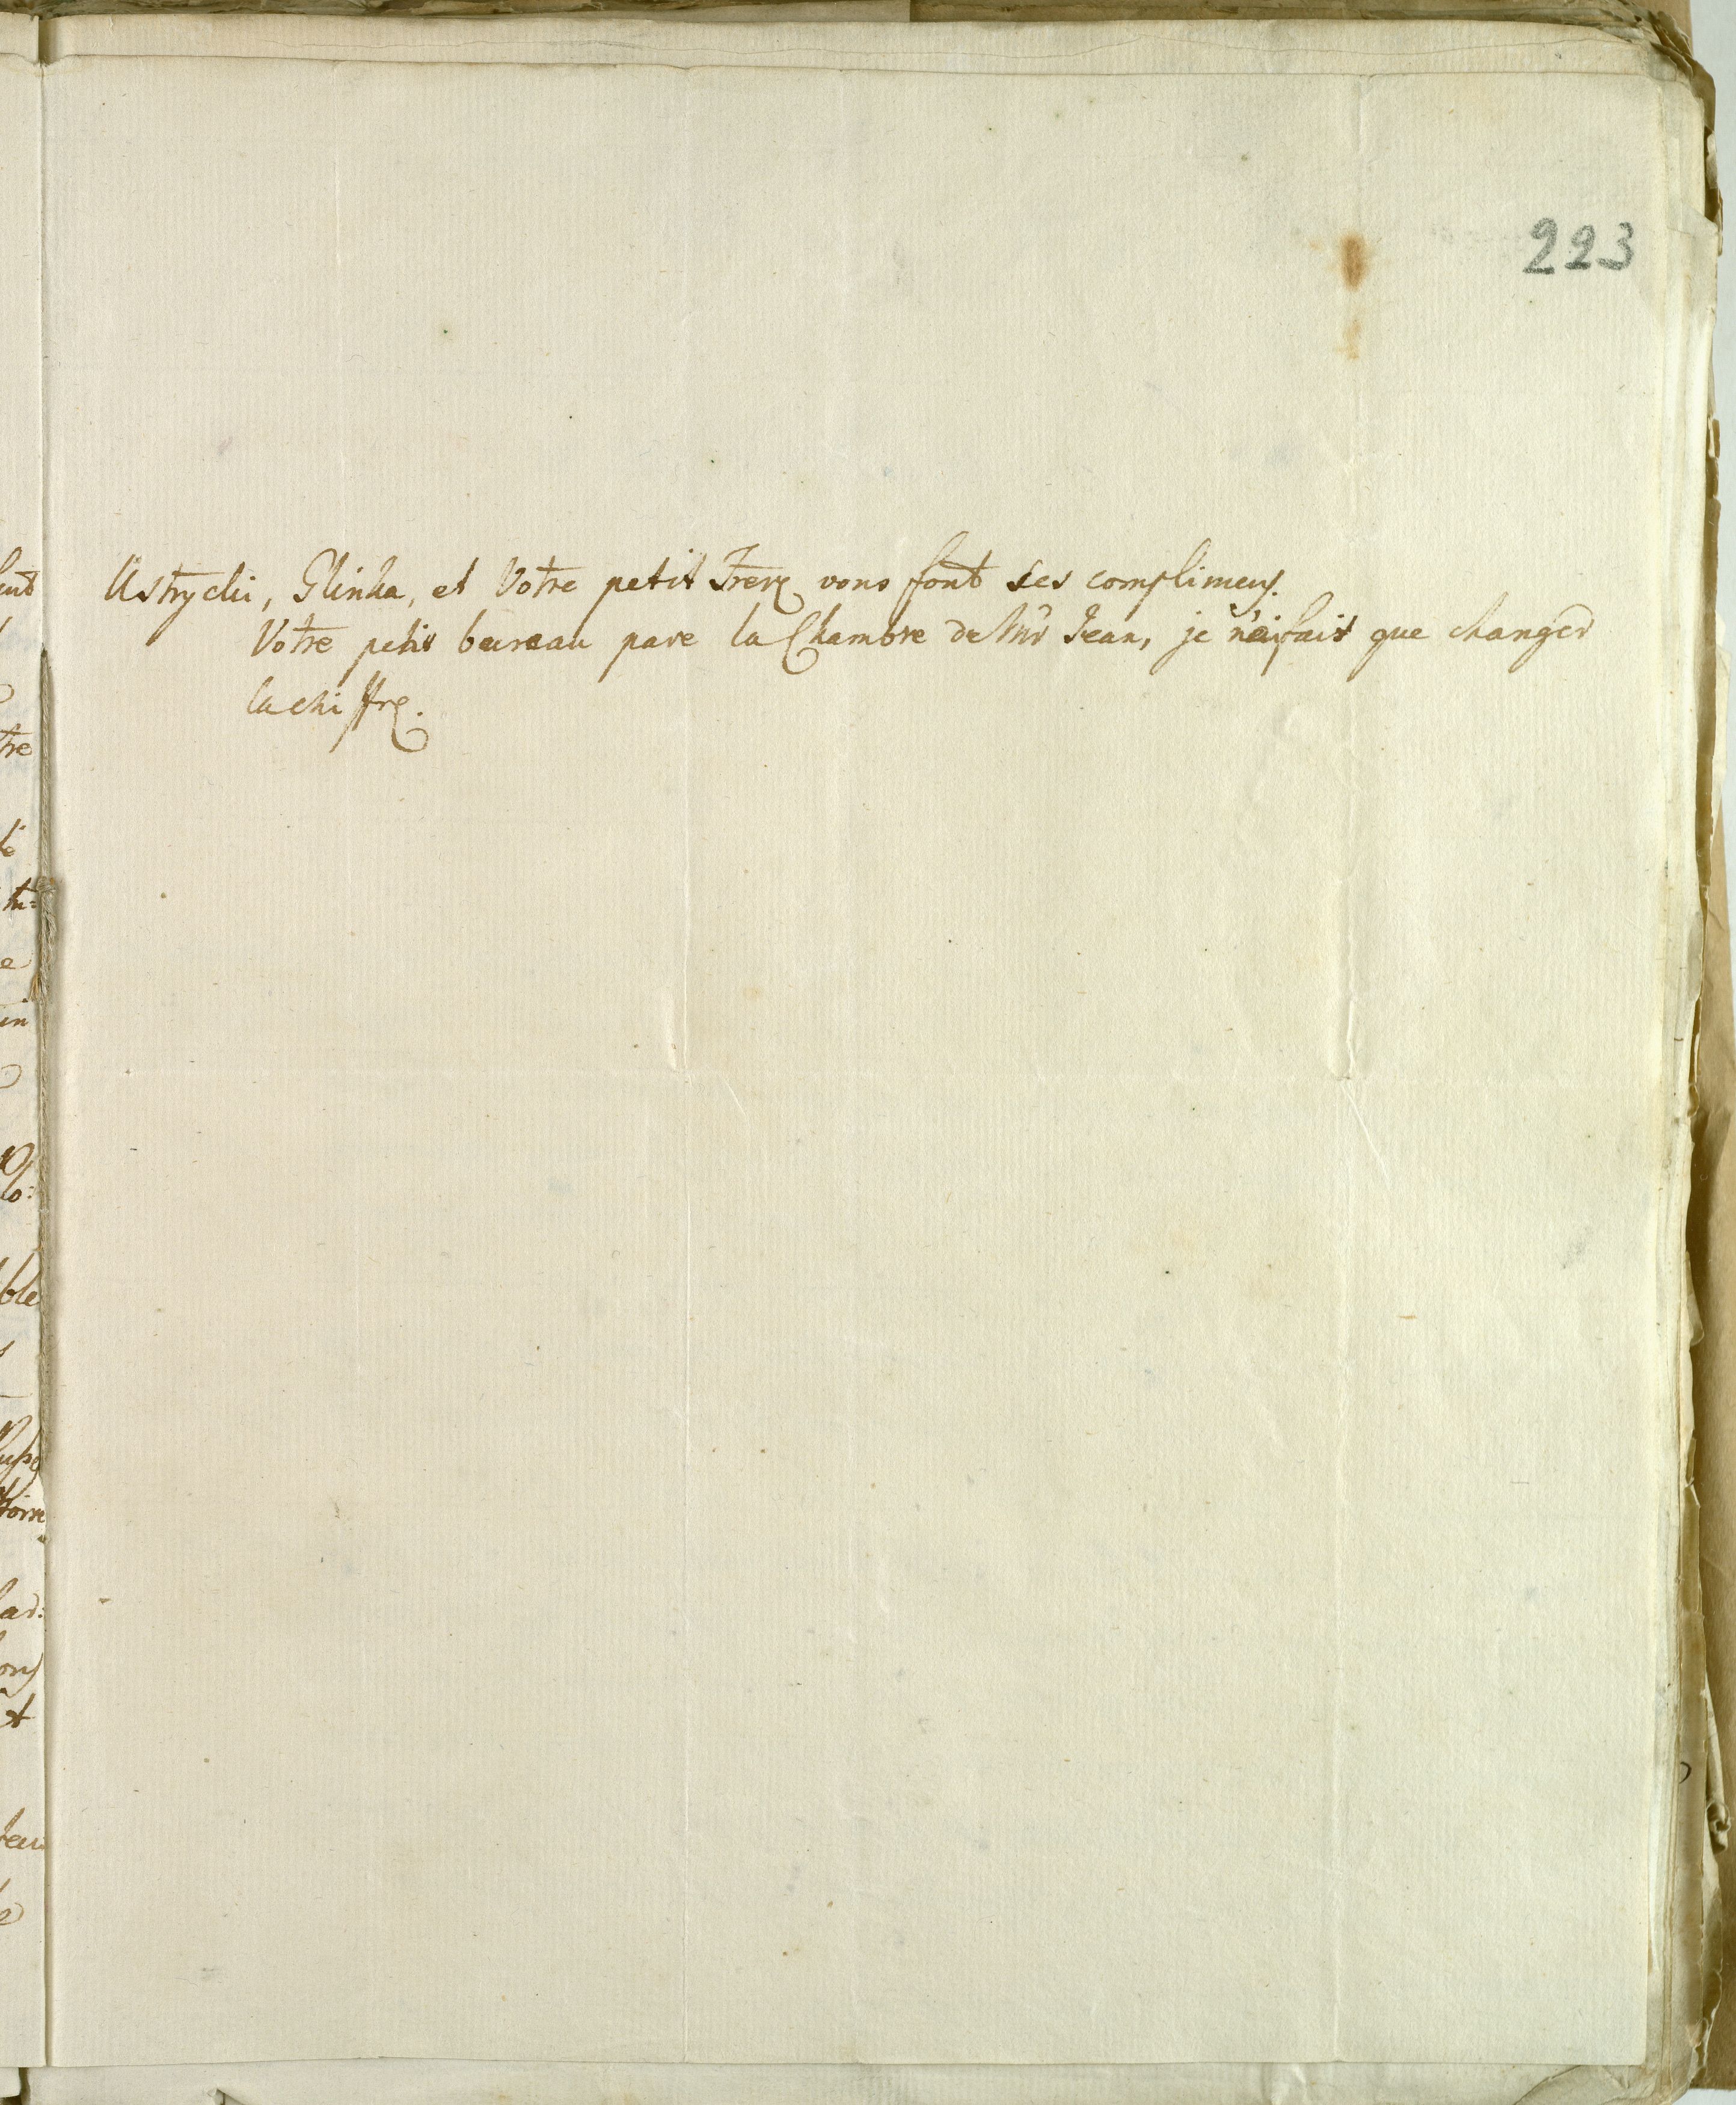 223
Ustrycki, Glinka, et Votre petit Frere vous font ses complimens.
Votre petit bureau pare la Chambre de Mr Jean, je n'ai fait que changer
la chiffre.